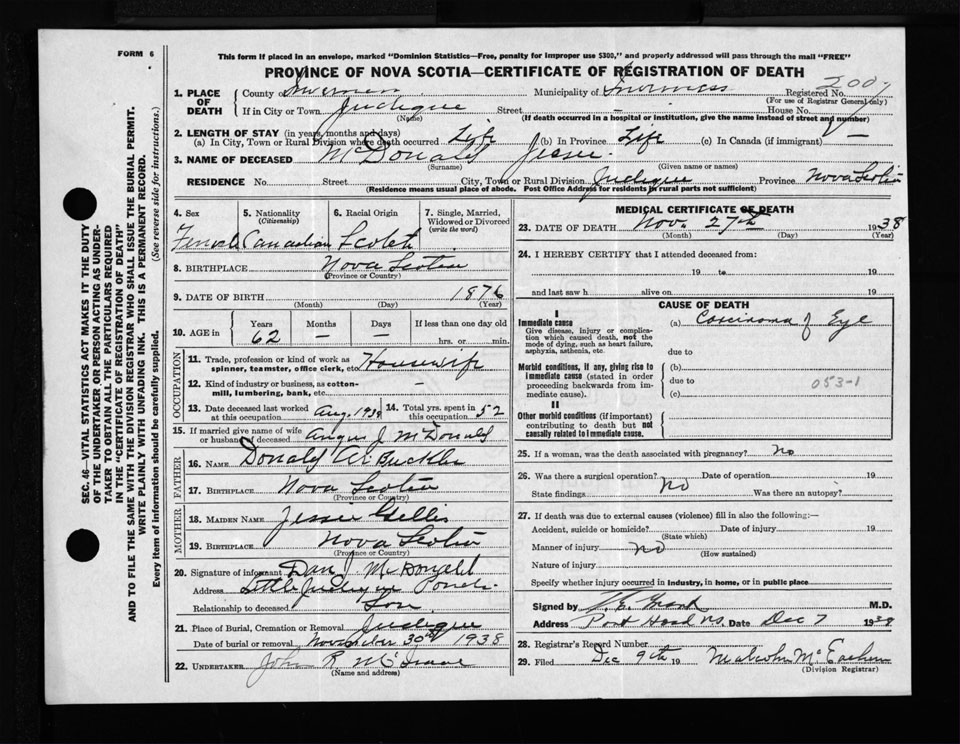 FORM 6
This form if placed in an envelope, marked "Dominion Statistics—Free, penalty for improper use $300," and properly addressed will pass through the mail "FREE"
PROVINCE OF NOVA SCOTIA—CERTIFICATE OF REGISTRATION OF DEATH
2007
1. PLACE OF DEATH
County of Inverness Municipality of Inverness Registered No.
(For use of Registrar General only)
If in City or Town Judique Street — House No.
(Name) (If death occurred in a hospital or institution, give the name instead of street and number)
2. LENGTH OF STAY (in years, months and days)
(a) In City, Town or Rural Division where death occurred Life (b) In Province Life (c) In Canada (if immigrant) —
3. NAME OF DECEASED McDonald Jessie
(Surname) (Given name or names)
RESIDENCE No. Street City, Town or Rural Division Judique Province Nova Scotia
(Residence means usual place of abode. Post Office Address for residents in rural parts not sufficient)
4. Sex 5. Nationality (Citizenship) 6. Racial Origin 7. Single, Married, Widowed or Divorced (write the word)
Female Canadian Scotch
8. BIRTHPLACE Nova Scotia
(Province or Country)
9. DATE OF BIRTH 1876
(Month) (Day) (Year)
10. AGE in Years Months Days If less than one day old
62 — — hrs. or min.
OCCUPATION
11. Trade, profession or kind of work as spinner, teamster, office clerk, etc. Housewife
12. Kind of industry or business, as cotton-mill, lumbering, bank, etc. —
13. Date deceased last worked at this occupation Aug. 1938 14. Total yrs. spent in this occupation 52
15. If married give name of wife or husband of deceased Angus J McDonald
FATHER
16. Name Donald
17. Birthplace Nova Scotia
(Province or Country)
MOTHER
18. Maiden Name Jessie Gillis
19. Birthplace Nova Scotia
(Province or Country)
20. Signature of informant Dan J McDonald
Address Little Judique Ponds
Relationship to deceased Son
21. Place of Burial, Cremation or Removal Judique
Date of burial or removal November 30th 1938
22. UNDERTAKER John R. McIsaac
(Name and address)
MEDICAL CERTIFICATE OF DEATH
23. DATE OF DEATH Nov. 27th 1938
(Month) (Day) (Year)
24. I HEREBY CERTIFY that I attended deceased from:
19 to 19
and last saw h alive on 19
CAUSE OF DEATH
I
Immediate cause (a) Carcinoma of Eye
Give disease, injury or complication which caused death, not the mode of dying, such as heart failure, asphyxia, asthenia, etc.
due to
Morbid conditions, if any, giving rise to immediate cause (stated in order proceeding backwards from immediate cause).
(b)
due to 053-1
(c)
II
Other morbid conditions (if important) contributing to death but not causally related to immediate cause.
25. If a woman, was the death associated with pregnancy? No
26. Was there a surgical operation? No Date of operation 19
State findings Was there an autopsy?
27. If death was due to external causes (violence) fill in also the following:—
Accident, suicide or homicide? Date of injury 19
(State which)
Manner of injury no
(How sustained)
Nature of injury
Specify whether injury occurred in industry, in home, or in public place
Signed by M.D.
Address Port Hood NS Date Dec 7 1938
28. Registrar's Record Number
29. Filed Dec 9th 19 Malcolm McEachern
(Division Registrar)
SEC. 46—VITAL STATISTICS ACT MAKES IT THE DUTY
OF THE UNDERTAKER OR PERSON ACTING AS UNDER-
TAKER TO OBTAIN ALL THE PARTICULARS REQUIRED
IN THE "CERTIFICATE OF REGISTRATION OF DEATH"
AND TO FILE THE SAME WITH THE DIVISION REGISTRAR WHO SHALL ISSUE THE BURIAL PERMIT.
WRITE PLAINLY WITH UNFADING INK. THIS IS A PERMANENT RECORD.
Every item of information should be carefully supplied. (See reverse side for instructions.)